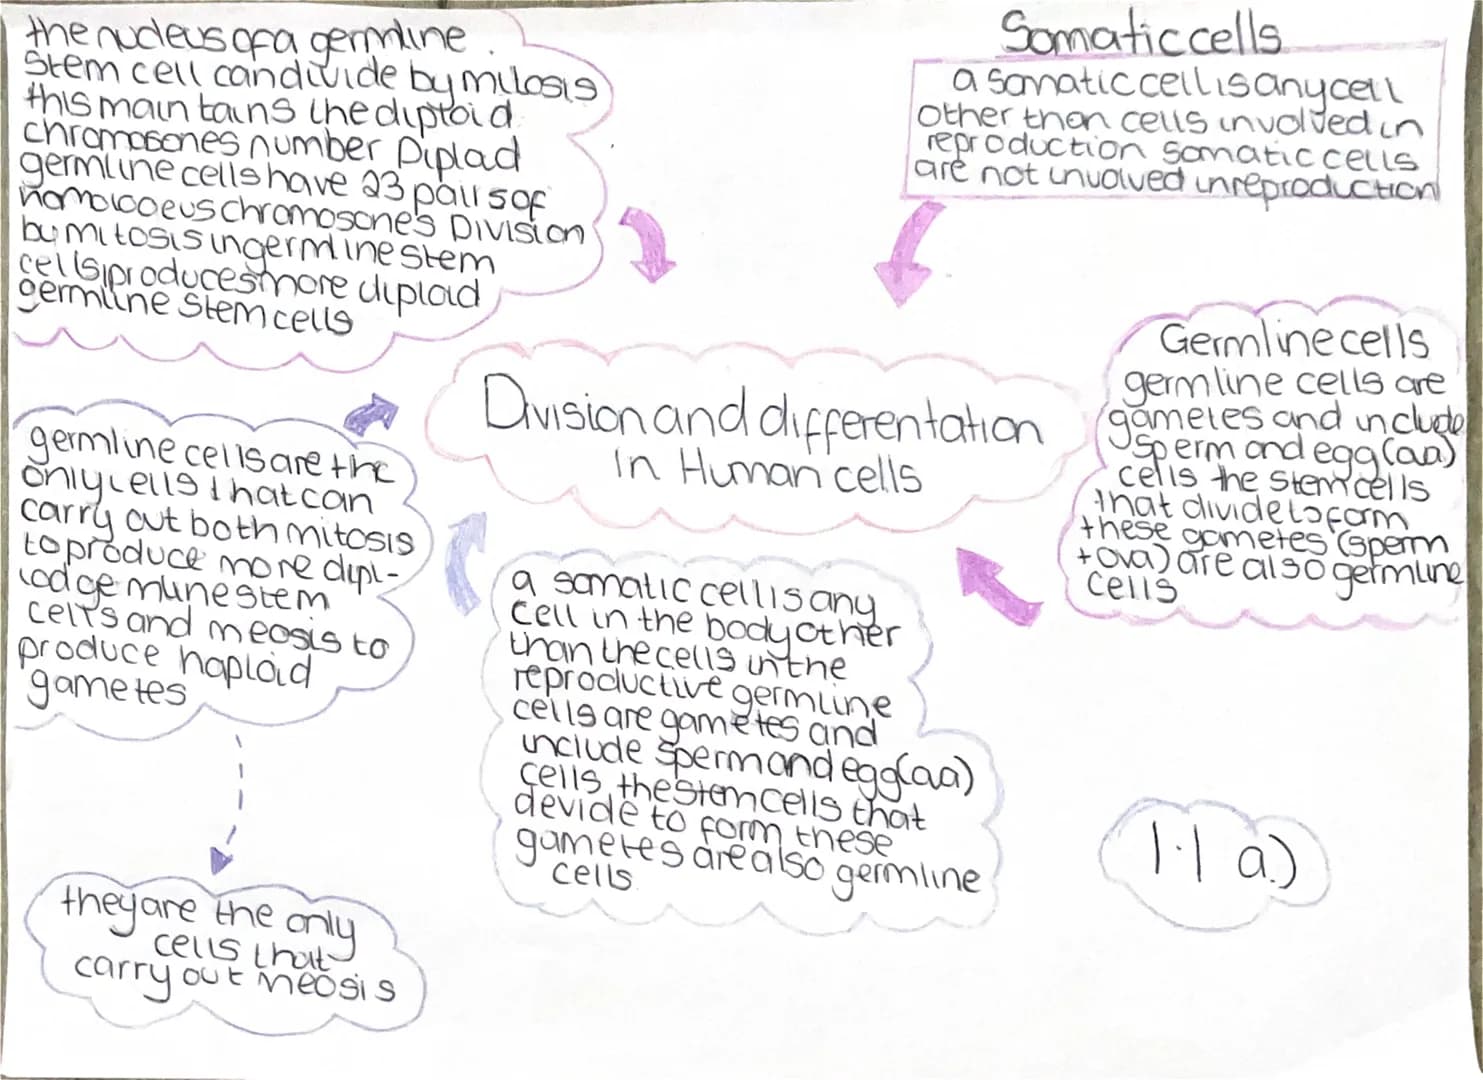 the nucleus of a germline
stem cell can divide by mitosis
this maintains the diploid
chromosones number Diploid
germline cells have 23 pairs of
homologoeus chromosones Division
by mitosis in germline stem
cells produces more diploid
germline stem cells
Somatic cells
a somatic cell is any cell
other than cells involved in
reproduction somatic cells
are not involved in reproduction
Division and differentation
in Human cells
Germline cells
germline cells are
gametes and include
sperm and egg (ova)
cells the stem cells
that divide to form
these gametes (sperm
+ ova) are also germline
cells
germline cells are the
only cells that can
carry out both mitosis
to produce more dipl-
iod germline stem
cells and meosis to
produce haploid
gametes
they are the only
cells that
carry out meosis
a somatic cell is any
cell in the body other
than the cells in the
reproductive germline
cells are gametes and
include sperm and egg (ova)
cells, the stem cells that
devide to form these
gametes are also germline
cells
1.1 a.)